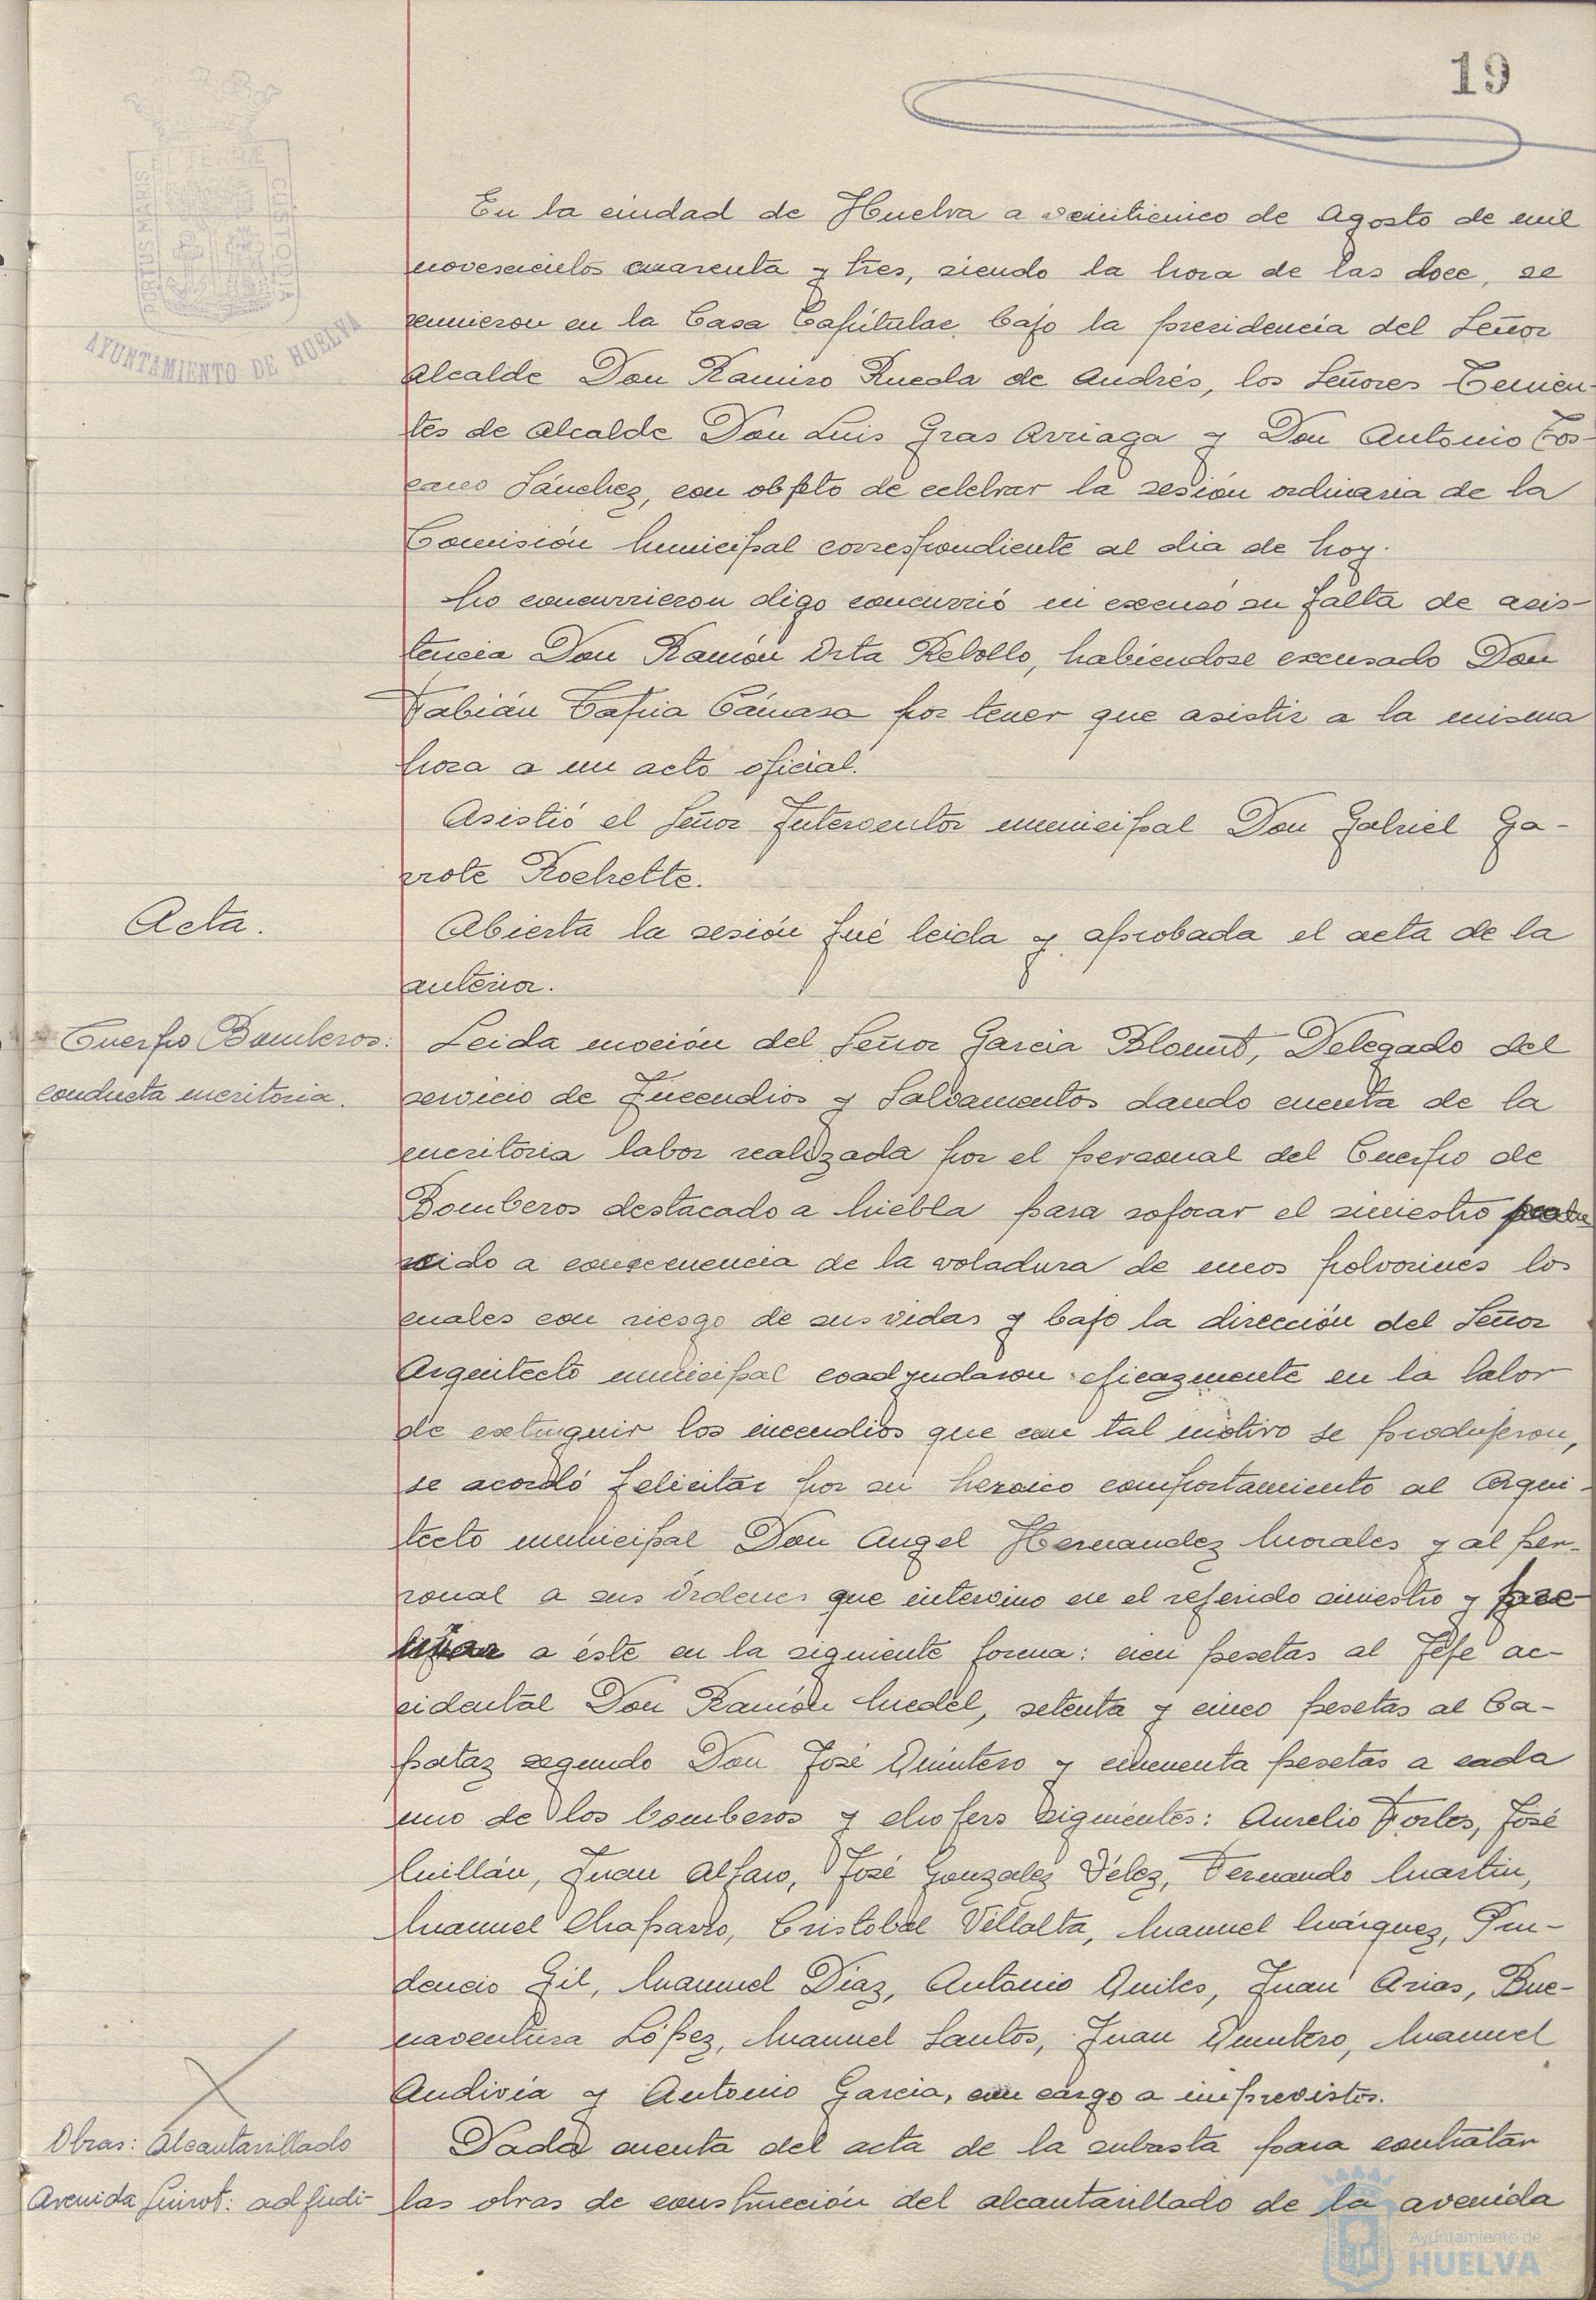 19
PORTUS MARIS
ET TERRÆ
CUSTODIA
AYUNTAMIENTO DE HUELVA
En la ciudad de Huelva a veinticinco de Agosto de mil
novescientos cuarenta y tres, siendo la hora de las doce, se
reunieron en la Casa Capitular, bajo la presidencia del Señor
Alcalde Don Ramiro Rueda de Andrés, los Señores Tenien-
tes de Alcalde Don Luis Gras Arriaga y Don Antonio Tos-
cano Sánchez, con objeto de celebrar la sesión ordinaria de la
Comisión Municipal correspondiente al dia de hoy.
No concurrieron digo concurrió ni excusó su falta de asis-
tencia Don Ramón Orta Rebollo, habiendose excusado Don
Fabián Tapia Cámara por tener que asistir a la misma
hora a un acto oficial.
Asistió el Señor Interventor municipal Don Gabriel Ga-
rrote Rochette.
Acta.
Abierta la sesión fué leida y aprobada el acta de la
anterior.
Cuerpo Bomberos:
conducta meritoria.
Leida moción del Señor Garcia Blount, Delegado del
servicio de Incendios y Salvamentos dando cuenta de la
meritoria labor realizada por el personal del Cuerpo de
Bomberos destacado a Niebla para sofocar el siniestro produ
cido a consecuencia de la voladura de unos polvorines los
cuales con riesgo de sus vidas y bajo la dirección del Señor
Arquitecto municipal coadyudaron eficazmente en la labor
de extinguir los incendios que con tal motivo se produjeron,
se acordó felicitar por su heroico comportamiento al Arqui-
tecto municipal Don Angel Hernandez Morales y al per-
sonal a sus órdenes que intervino en el referido siniestro y pre-
miar a éste en la siguiente forma: cien pesetas al Jefe ac-
cidental Don Ramón Medel, setenta y cinco pesetas al Ca-
pataz segundo Don José Quintero y cincuenta pesetas a cada
uno de los bomberos y chofers siguientes: Aurelio Fortes, José
Millán, Juan Alfaro, José Gonzalez Vélez, Fernando Martin,
Manuel Chaparro, Cristobal Villalta, Manuel Márquez, Pru-
dencio Gil, Manuel Díaz, Antonio Quiles, Juan Arias, Bue-
naventura López, Manuel Santos, Juan Quintero, Manuel
Andivia y Antonio Garcia, con cargo a imprevistos.
Obras: Alcantarillado
Avenida Guirot: adjudi-
Dada cuenta del acta de la subasta para contratar
las obras de construcción del alcantarillado de la avenida
Ayuntamiento de
HUELVA